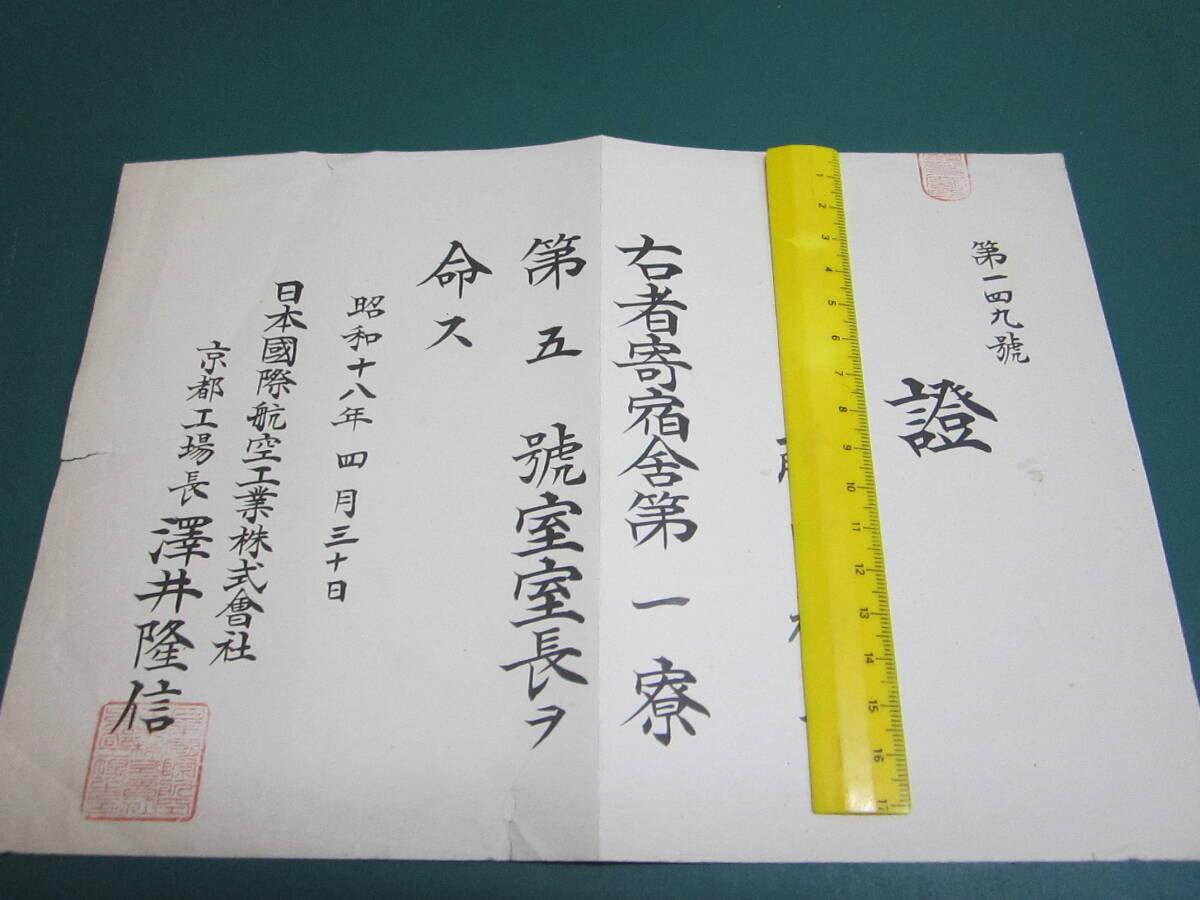 第一四九號
證
右者寄宿舍第一寮
第五號室室長ヲ
命ス
昭和十八年四月三十日
日本國際航空工業株式會社
京都工場長 澤井隆信
1 2 3 4 5 6 7 8 9 10 11 12 13 14 15 16 17